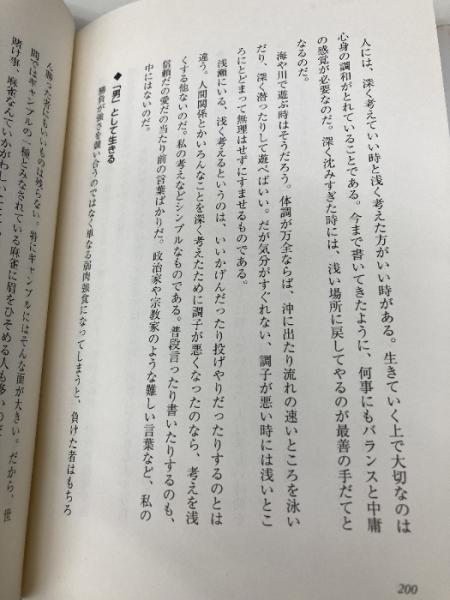 人には、深く考えていい時と浅く考えた方がいい時がある。生きていく上で大切なのは
心身の調和がとれていることである。今まで書いてきたように、何事にもバランスと中庸
の感覚が必要なのだ。深く沈みすぎた時には、浅い場所に戻してやるのが最善の手だてと
なるのだ。
海や川で遊ぶ時はそうだろう。体調が万全ならば、沖に出たり流れの速いところを泳い
だり、深く潜ったりして遊べばいい。だが気分がすぐれない、調子が悪い時には浅いとこ
ろにとどまって無理はせずにすませるものである。
浅瀬にいる、浅く考えるというのは、いいかげんだったり投げやりだったりするのとは
違う。人間関係とかいろんなことを深く考えたために調子が悪くなったのなら、考えを浅
くする他ないのだ。私の考えなどシンプルなものである。普段言ったり書いたりするのも、
信頼だの愛だの当たり前の言葉ばかりだ。政治家や宗教家のような難しい言葉など、私の
中にはないのだ。
◆「男」として生きる
勝負が強さを競い合うのではなく単なる弱肉強食になってしまうと、負けた者はもちろ
ん勝った者にもいいものは残らない。特にギャンブルにはそんな面が大きい。だから、世
間ではギャンブルの一種とみなされている麻雀に眉をひそめる人も多いのだ
賭け事、麻雀なんていかがわしい
200